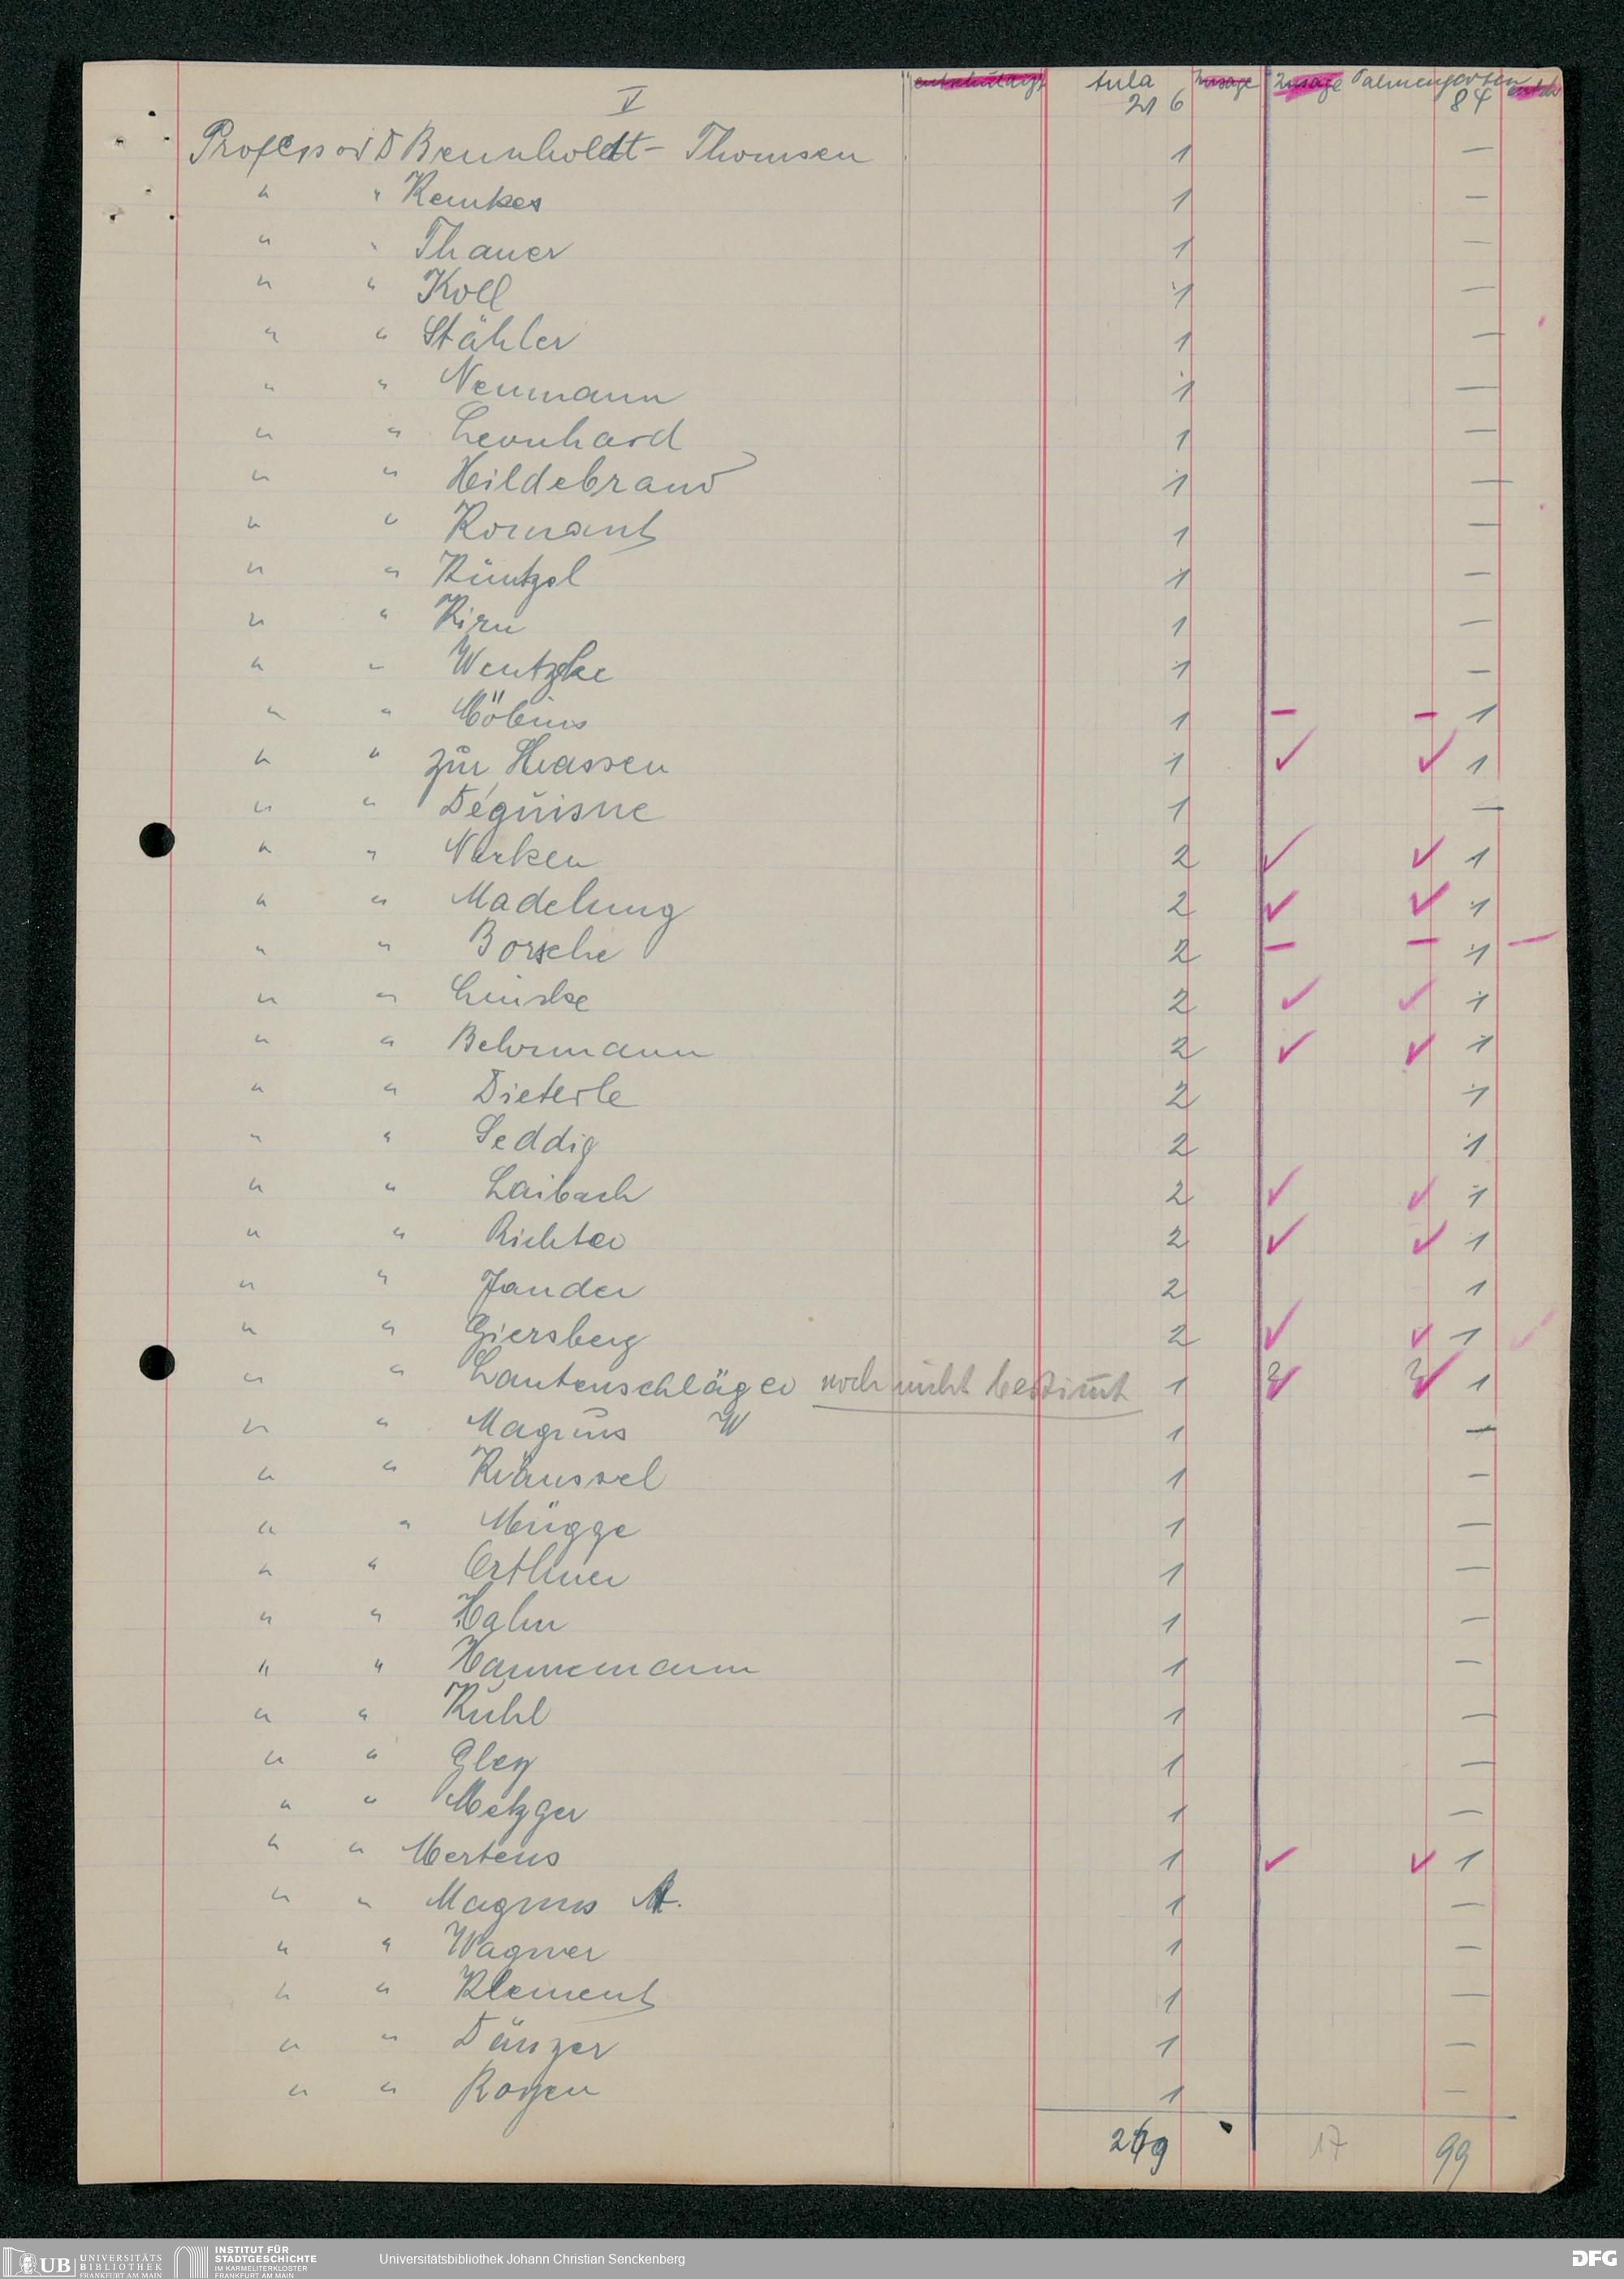 V
entschuldigt Aula Zusage Zusage Palmengarten entsch
216 84
Professor D Bennholdt- Thomsen 1 —
" " Remkes 1 —
" " Thauer 1 —
" " Koll 1 —
" " Stähler 1 —
" " Neumann 1 —
" " Leonhard 1 —
" " Hildebrand 1 —
" " Kornant 1 —
" " Küntzel 1 —
" " Kirn 1 —
" " Wentzke 1 —
" " Möbius 1 – – 1
" " zur Strassen 1 ✓ ✓ 1
" " Déguisne 1 —
" " Nacken 2 ✓ ✓ 1
" " Madelung 2 ✓ ✓ 1
" " Borsche 2 – – 1 –
" " Linke 2 ✓ ✓ 1
" " Behrmann 2 ✓ ✓ 1
" " Dieterle 2 1
" " Seddig 2 1
" " Laibach 2 ✓ ✓ 1
" " Richter 2 ✓ ✓ 1
" " Jander 2 1
" " Giersberg 2 ✓ ✓ 1 ✓
" " Lautenschläger noch nicht bestimt 1 ✓ ✓ 1
" " Magnus W 1 —
" " Kräussel 1 —
" " Mügge 1 —
" " Orthner 1 —
" " Hahn 1 —
" " Hannemann 1 —
" " Kuhl 1 —
" " Gley 1 —
" " Metzger 1 —
" " Mertens 1 ✓ ✓ 1
" " Magnus A. 1 —
" " Wagner 1 —
" " Klement 1 —
" " Dänzer 1 —
" " Royen 1 —
17 99
UB UNIVERSITÄTS
BIBLIOTHEK
FRANKFURT AM MAIN
INSTITUT FÜR
STADTGESCHICHTE
IM KARMELITERKLOSTER
FRANKFURT AM MAIN
Universitätsbibliothek Johann Christian Senckenberg
DFG